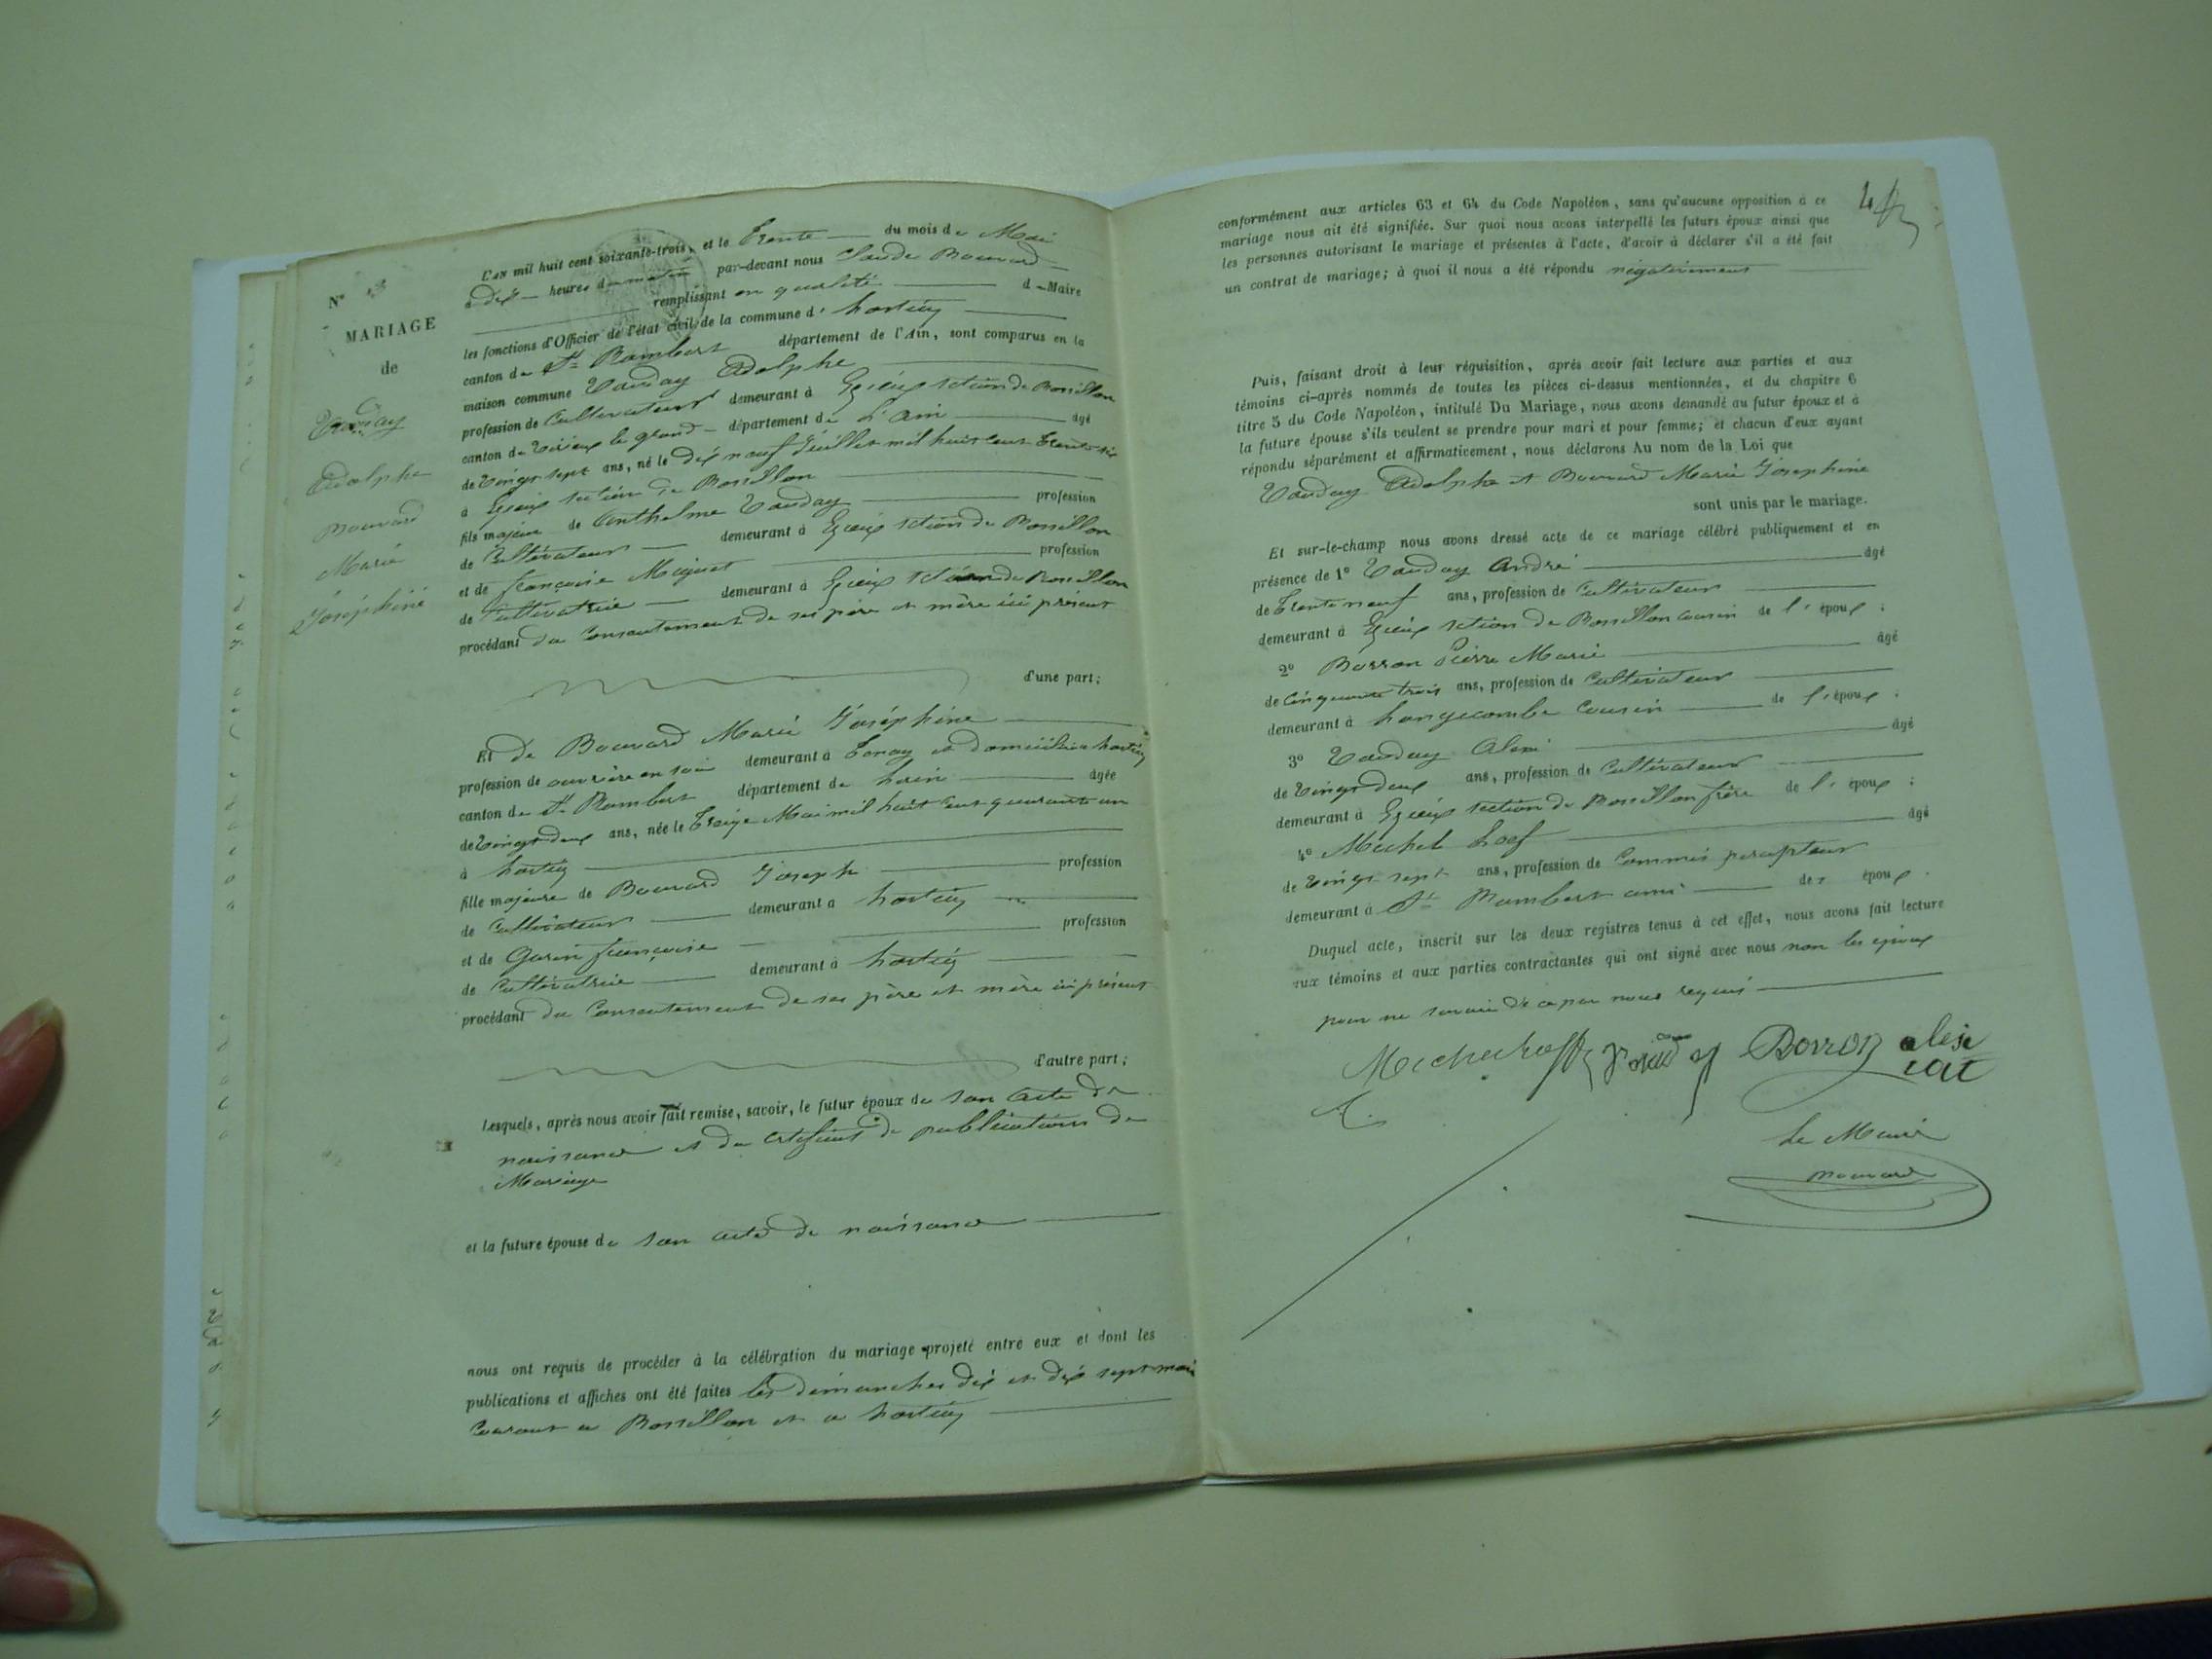 N°
MARIAGE
de
Vauday
Adolphe
Bouvard
Marie
Joséphine
L'AN mil huit cent soixante-trois, et le Trente du mois de Mai
à dix heures du matin par-devant nous Claude Bouvard
remplissant en qualité de Maire
les fonctions d'Officier de l'état civil de la commune d' hostiaz
canton de St Rambert département de l'Ain, sont comparus en la
maison commune Vauday Adolphe
profession de Cultivateur demeurant à section de Rossillon
canton de Virieux le grand département de L'Ain âgé
de Vingt sept ans, né le dix neuf Juillet mil huit cent trente
à section de Rossillon
fils majeur de Anthelme Vauday profession
de Cultivateur demeurant à section de Rossillon
et de françoise profession
de Cultivatrice demeurant à section de Rossillon
procédant du Consentement de ses père et mère ici présent
d'une part;
Et de Bouvard Marie Joséphine
profession de ouvrière en soie demeurant à Tenay et domiciliée a hostiaz
canton de St Rambert département de âgée
de Vingt deux ans, née le Treize Mai mil huit cent quarante un
à hostiaz
fille majeure de Bouvard Joseph profession
de Cultivateur demeurant a hostiaz
et de Garin françoise profession
de Cultivatrice demeurant à hostiaz
procédant du Consentement de ses père et mère ici présent
d'autre part;
Lesquels, après nous avoir fait remise, savoir, le futur époux de son acte de
naissance et du certificat de publications de
Mariage
et la future épouse de son acte de naissance
nous ont requis de procéder à la célébration du mariage projeté entre eux et dont les
publications et affiches ont été faites les dimanches dix et dix sept mai
Courant a Rossillon et a hostiaz
conformément aux articles 63 et 64 du Code Napoléon, sans qu'aucune opposition à ce
mariage nous ait été signifiée. Sur quoi nous avons interpellé les futurs époux ainsi que
les personnes autorisant le mariage et présentes à l'acte, d'avoir à déclarer s'il a été fait
un contrat de mariage; à quoi il nous a été répondu négativement
Puis, faisant droit à leur réquisition, après avoir fait lecture aux parties et aux
témoins ci-après nommés de toutes les pièces ci-dessus mentionnées, et du chapitre 6
titre 5 du Code Napoléon, intitulé Du Mariage, nous avons demandé au futur époux et à
la future épouse s'ils veulent se prendre pour mari et pour femme; et chacun d'eux ayant
répondu séparément et affirmativement, nous déclarons Au nom de la Loi que
Vauday Adolphe et Bouvard Marie Josephine
sont unis par le mariage.
Et sur-le-champ nous avons dressé acte de ce mariage célébré publiquement et en
présence de 1° Vauday André âgé
de Trente neuf ans, profession de Cultivateur
demeurant à section de Rossillon cousin de l' époux;
2° Borron Pierre Marie âgé
de Cinquante trois ans, profession de Cultivateur
demeurant à hongecombe Cousin de l' époux;
3° Vauday Alexi âgé
de Vingt deux ans, profession de Cultivateur
demeurant à section de Rossillon frère de l' époux;
4° Michel âgé
de Vingt sept ans, profession de Commis percepteur
demeurant à St Rambert ami des époux.
Duquel acte, inscrit sur les deux registres tenus à cet effet, nous avons fait lecture
aux témoins et aux parties contractantes qui ont signé avec nous non les époux
pour ne savoir de ce par nous requis
Borron
Le Maire
Bouvard